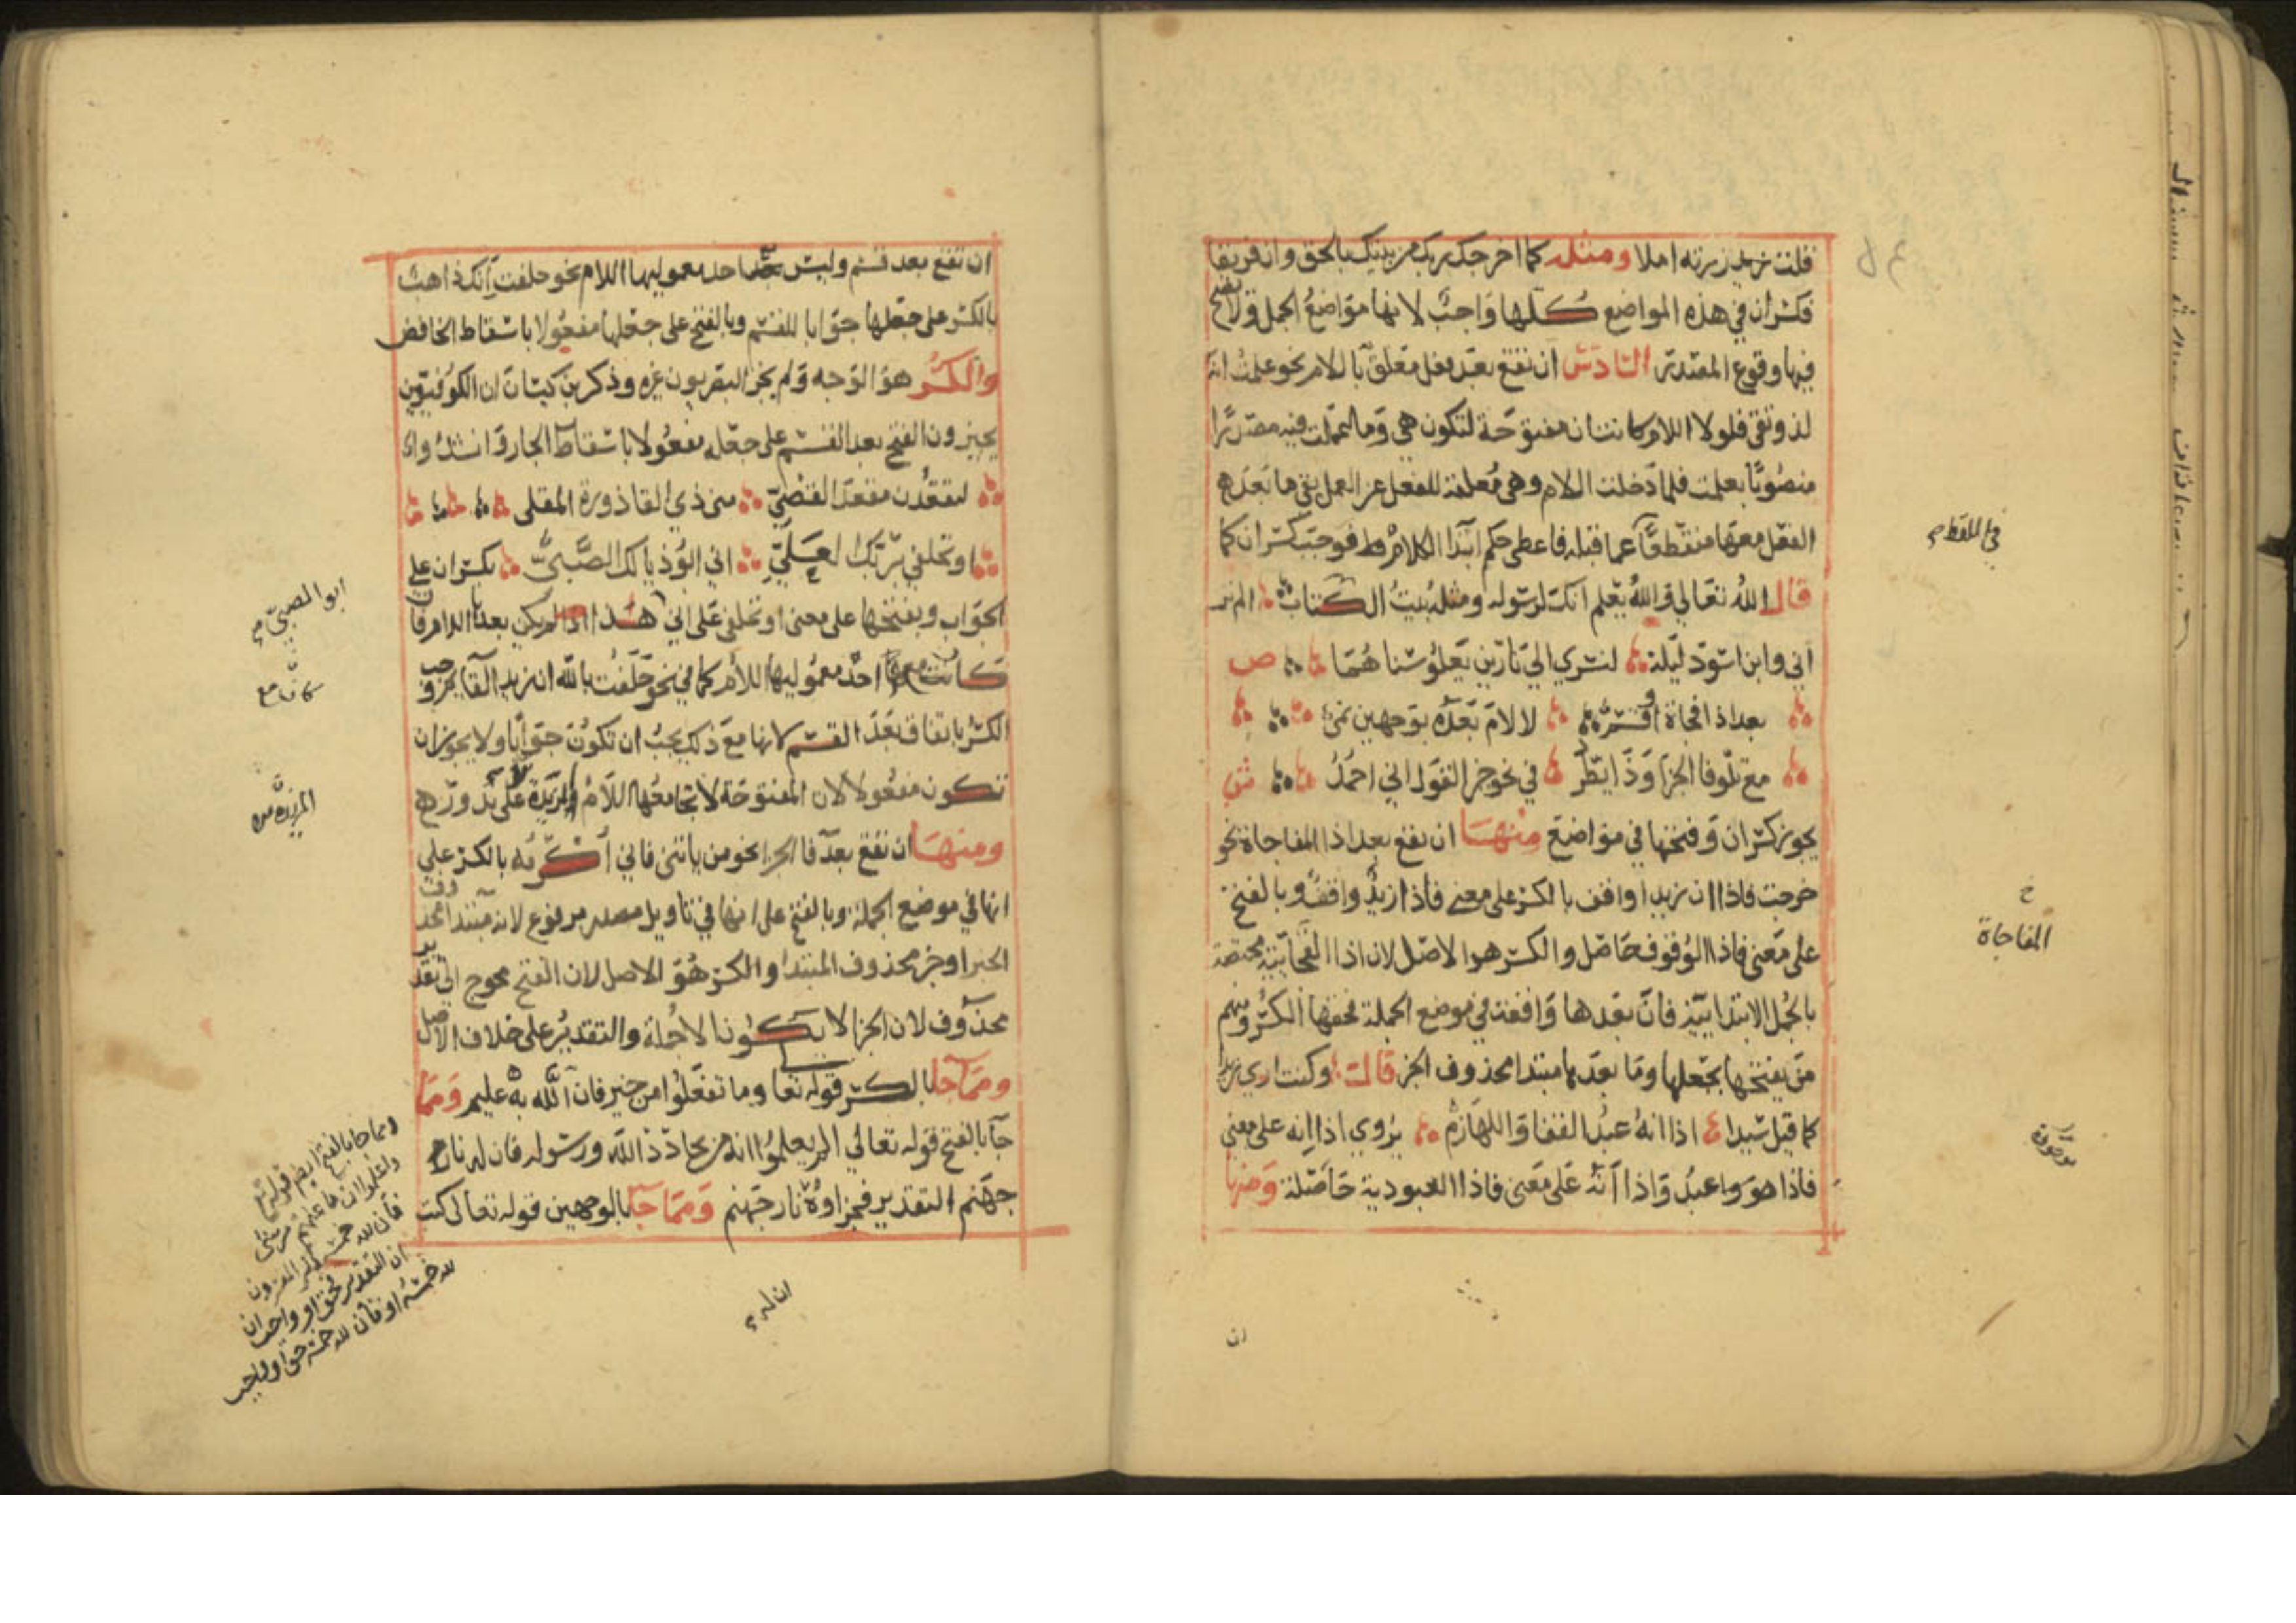 قلت زيد زرته املا ومثله كما اخرجك ربك من بيتك بالحق وان فريقا
فكسر ان في هذه المواضع كلها واجب لانها مواضع الجمل ولا يصح
فيها وقوع المصدر السادس ان تقع بعد فعل معلق باللام نحو علمت انه
لذو تقى فلولا اللام كانت ان مفتوحة لتكون هي وما عملت فيه مصدرا
منصوبا بعلمت فلما دخلت اللام وهي معلقة للفعل عن العمل بقي ما بعد
الفعل معها منقطعا عما قبله فاعطي حكم ابتدا الكلام فوجب كسر ان كما
قال الله تعالى والله يعلم انك لرسوله ومثله بيت الكتاب الم تر
اني وابن اسود ليلة لنسري الى نارين يعلو سناهما ص
بعد اذا فجاة او قسم لا لام بعده بوجهين نمي
مع تلو فا الجزا وذا يطرد في نحو خير القول اني احمد ش
يجوز كسر ان وفتحها في مواضع منها ان تقع بعد اذا المفاجاة نحو
خرجت فاذا ان زيدا واقف بالكسر على معنى فاذا زيد واقف وبالفتح
على معنى فاذا الوقوف حاصل والكسر هو الاصل لان اذا الفجائية مختصة
بالجمل الابتدائية فان بعدها واقعة في موضع الجملة فحقها الكسر ومنهم
من يفتحها يجعلها وما بعدها مبتدا محذوف الخبر قال وكنت ارى زيدا
كما قيل سيدا اذا انه عبد القفا واللهازم يروى اذا انه على معنى
فاذا هو عبد واذا انه على معنى فاذا العبودية حاصلة ومنها
في اللفظ
خ
المفاجاة
ان
ان تقع بعد قسم وليس مع احد معموليها اللام نحو حلفت انك ذاهب
بالكسر على جعلها جوابا للقسم وبالفتح على جعلها مفعولا باسقاط الخافض
والكسر هو الوجه ولم يجز البصريون غيره وذكر بن كيسان ان الكوفيين
يجيزون الفتح بعد القسم على جعله مفعولا باسقاط الجار وانشدوا
لتقعدن مقعد القصي مني ذي القاذورة المقلي
او تحلفي بربك العلي اني ابو ذيالك الصبي بكسر ان على
الجواب وبفتحها على معنى او تحلفي على اني هذا اذا لم يكن بعدها اللام فان
كانت مع احد معموليها اللام كما في نحو حلفت بالله ان زيدا لقايم وجب
الكسر باتفاق بعد القسم لانها مع ذلك يجب ان تكون جوابا ولا يجوز ان
تكون مفعولا لان المفتوحة لا تجامعها اللام المزيدة على ندور
ومنها ان تقع بعد فا الجزا نحو من ياتني فاني اكرمه بالكسر على
انها في موضع الجملة وبالفتح على انها في تاويل مصدر مرفوع لانه مبتدا محذوف
الخبر او خبر محذوف المبتدا والكسر هو الاصل لان الفتح محوج الى تقدير
محذوف لان الجزا لا يكون الا جملة والتقدير على خلاف الاصل
ومما جا بالكسر قوله تعا وما تفعلوا من خير فان الله به عليم ومما
جا بالفتح قوله تعالى الم يعلموا انه من يحادد الله ورسوله فان له نار
جهنم التقدير فجزاوه نار جهنم ومما جا بالوجهين قوله تعالى كتب
ابو الصبي
كان مع
المزيدة
ومما جا بالفتح ايضا قوله تع
واعلموا ان ما غنمتم من شي
فان لله خمسه
ان التقدير فحق او واجب ان
لله خمسه او فان لله خمسه حق او واجب
ان له